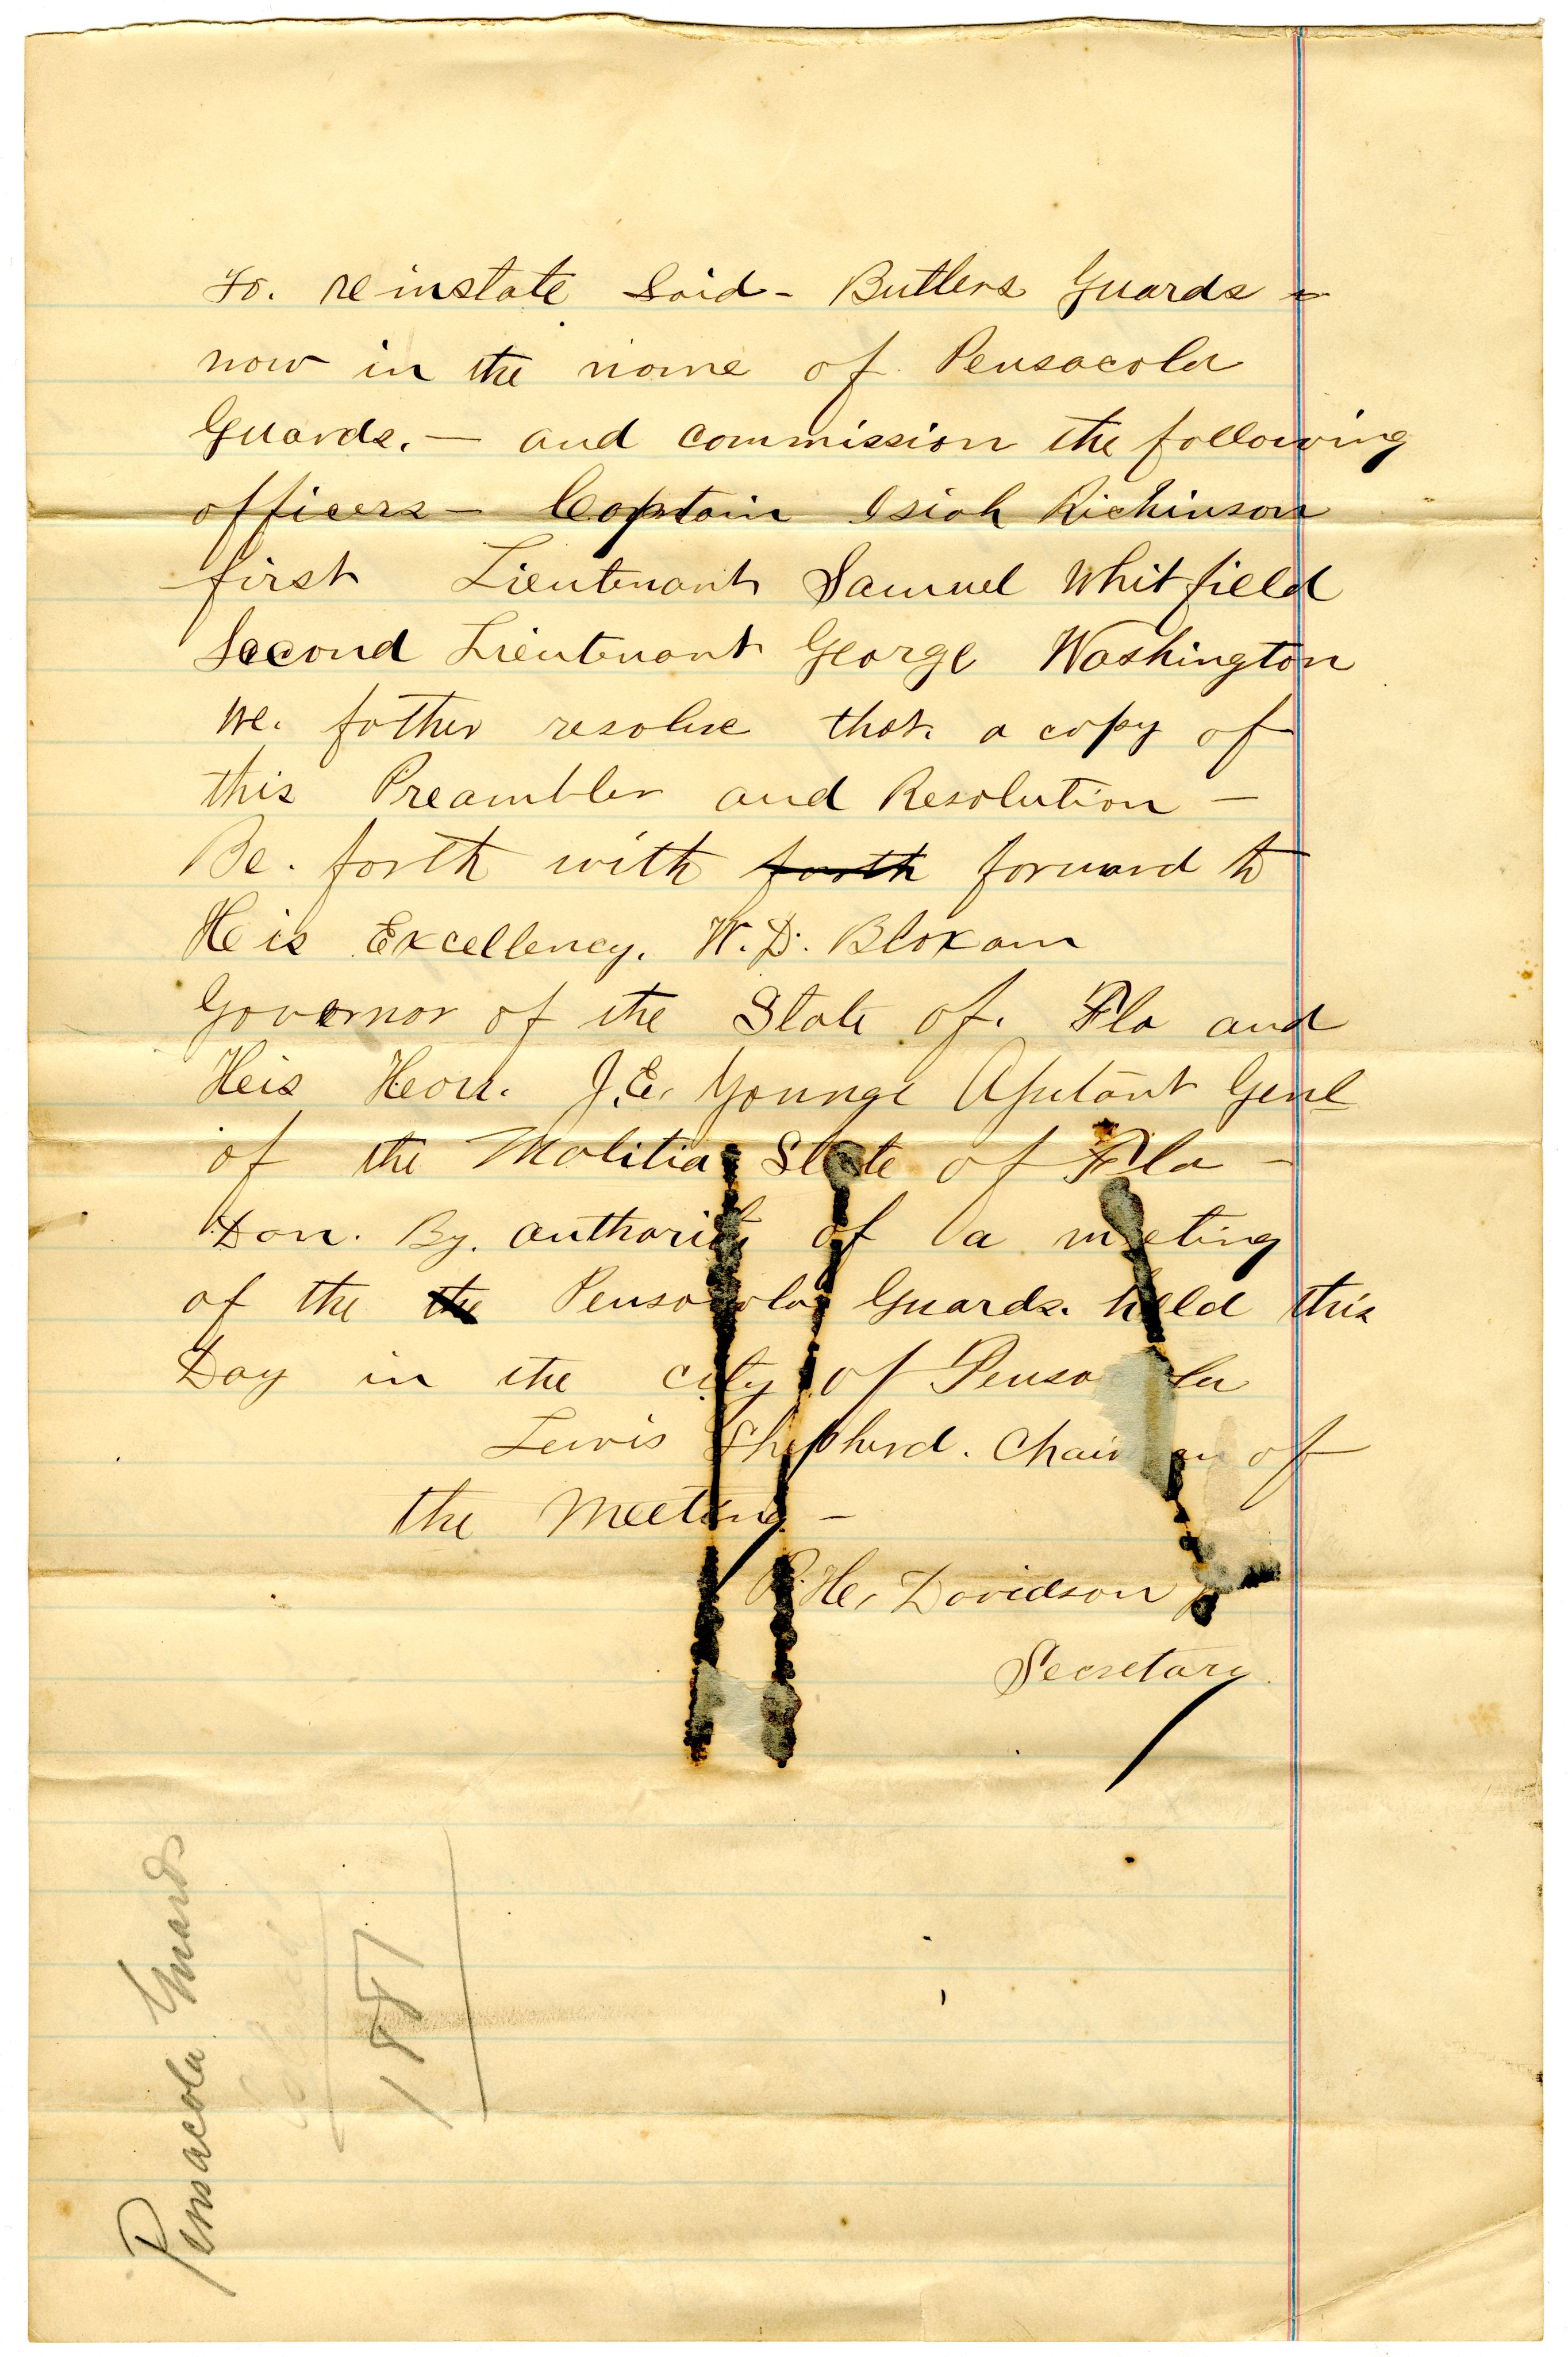 To. reinstate Said - Butlers Guards -
now in the name of Pensacola
Guards. — and commission the following
officers — Captain Isiah Richinson
first Lieutenant Samuel Whitfield
Second Lieutenant George Washington
We. fother resolve that. a copy of
this Preambler and Resolution —
Be. forth with forth forward to
He is Excellency. W. D. Bloxam
Governor of the State of. Fla and
Heis Heon. J. E. Younge Ajutant Genl
of the Molitia State of Fla —
Don. By. authority of a meeting
of the the Pensacola Guards. held this
Day in the city of Pensacola
Lewis Shepherd. Chairman of
the Meeting —
R. H. Davidson
Secretary
Pensacola Guards
1887